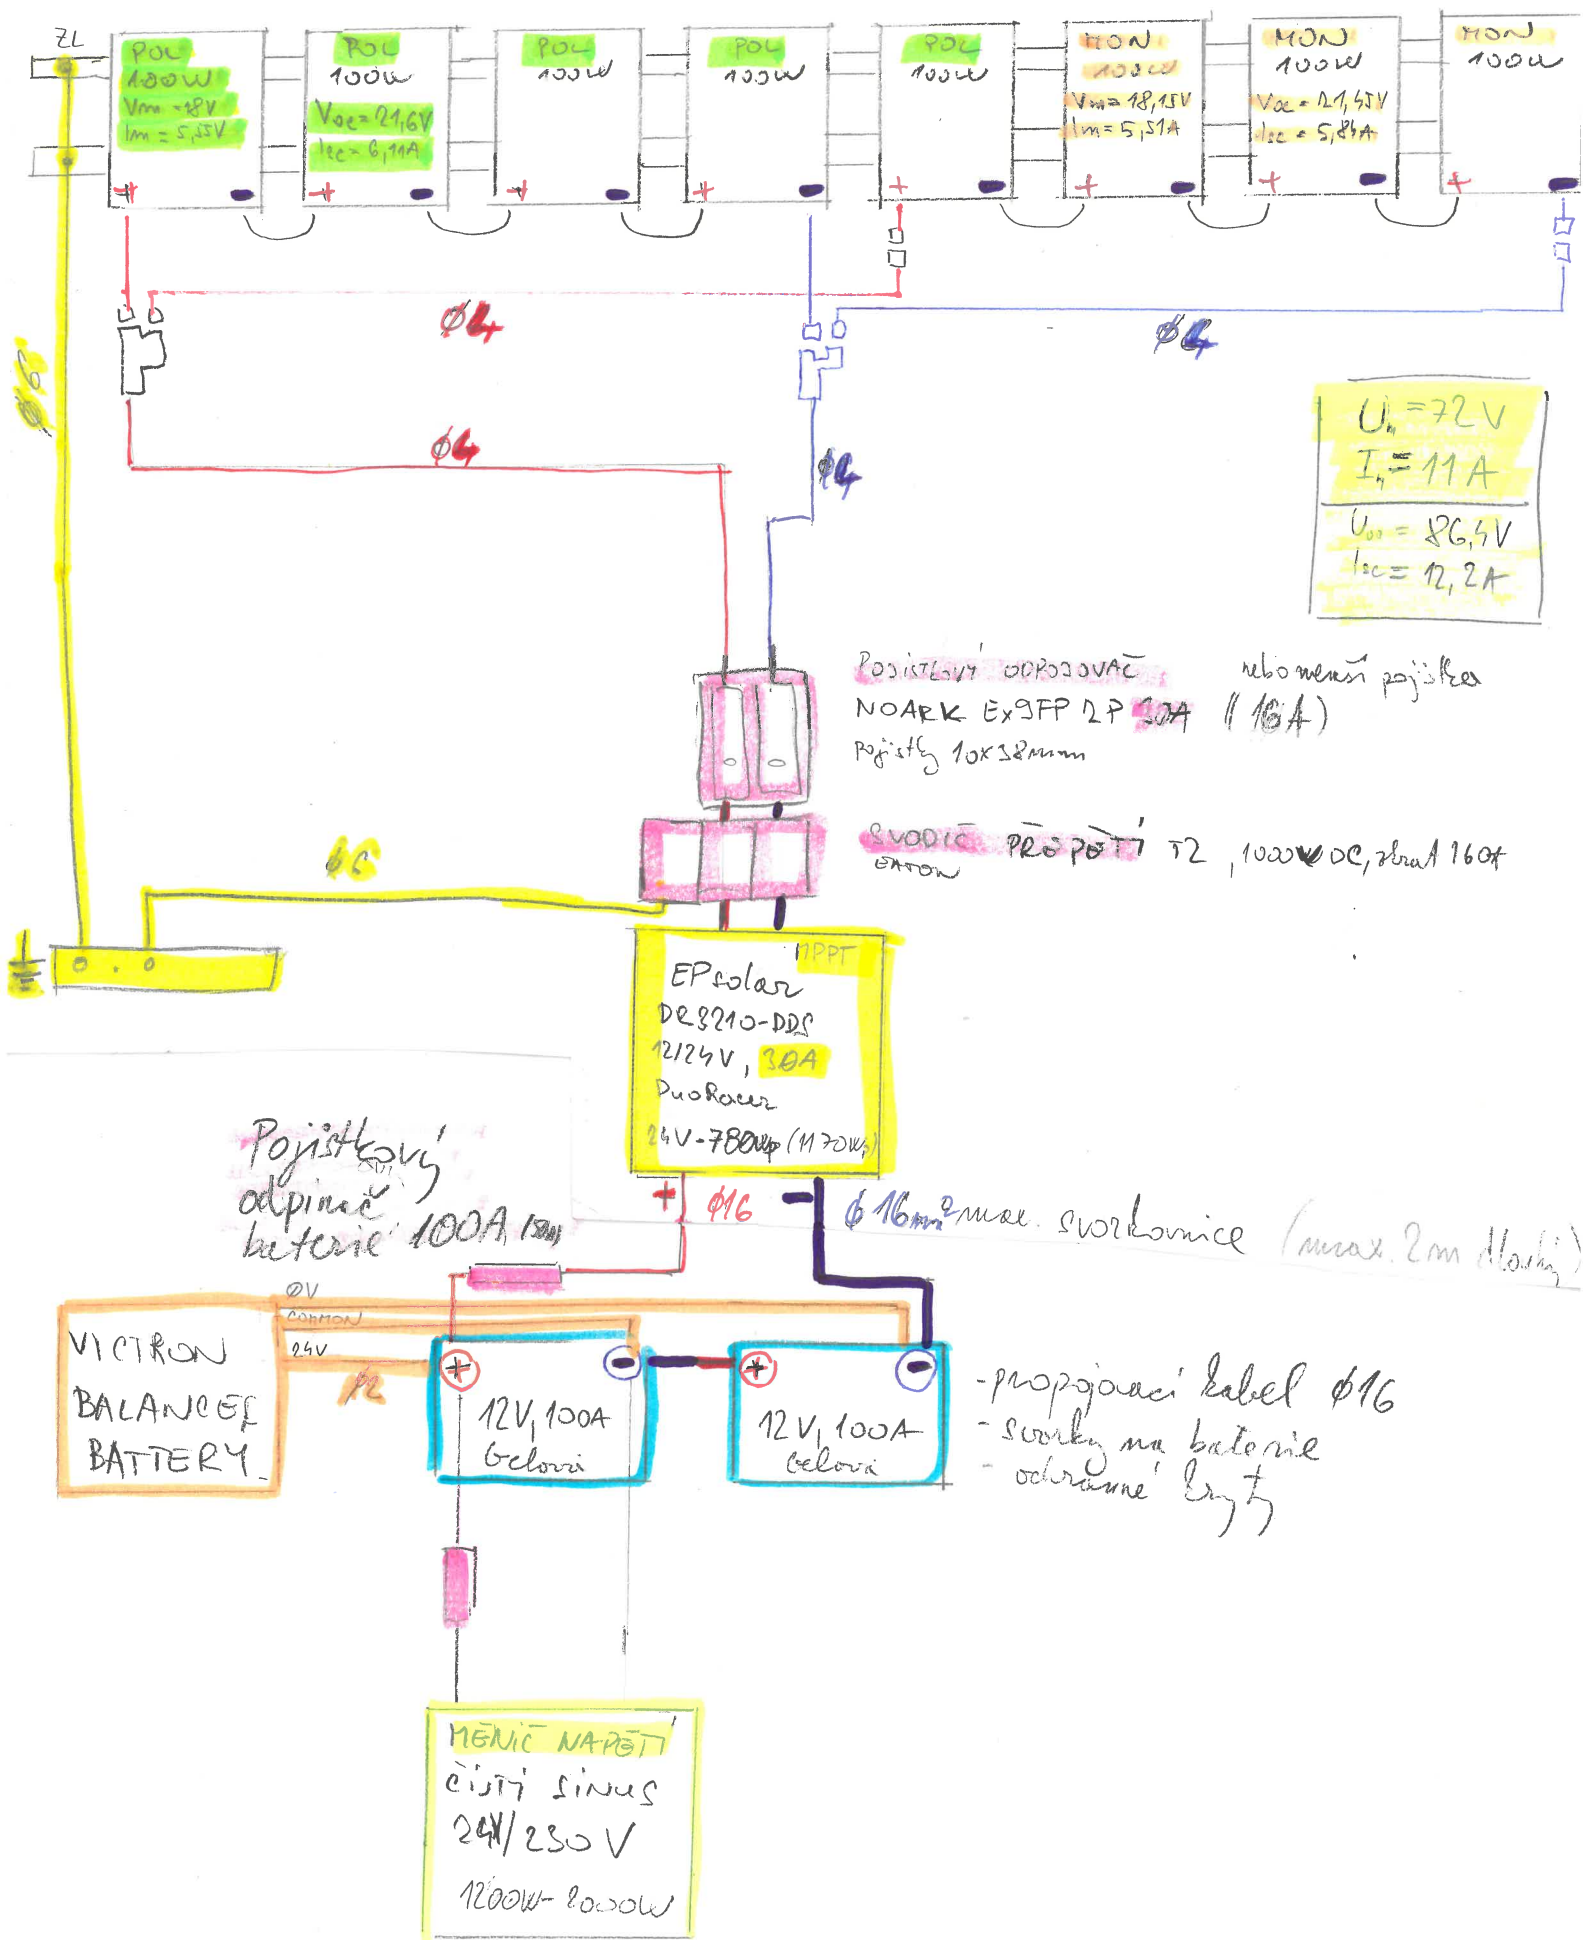 ZL
POL
100W
Vm = 18V
Im = 5,55V
POL
100W
Voc = 21,6V
Isc = 6,11A
POL
100W
POL
100W
POL
100W
MON
100W
Vm = 18,15V
Im = 5,51A
MON
100W
Voc = 21,45V
Isc = 5,84A
MON
100W
+ -
+ -
+ -
+ -
+ -
+ -
+ -
+ -
Ø4
Ø4
Ø6
Ø4
Ø4
Un = 72V
In = 11A
Uoo = 86,4V
Isc = 12,2A
POJISTKOVÝ ODPOJOVAČ nebo menší pojistka
NOARK Ex9FP 2P 30A (16A)
Pojistky 10x38mm
SVODIČ PŘEPĚTÍ T2, 1000V DC, 160A
EATON
Ø6
MPPT
EPsolar
DR3210-DDS
12/24V, 30A
DuoRacer
24V-780Wp (1170W)
Pojistkový
odpínač
baterie 100A
+ Ø16 - Ø16mm² max. svorkovnice (max. 2m
0V
COMMON
24V
Ø2
VICTRON
BALANCER
BATTERY
+ -
12V, 100A
Gelová
+ -
12V, 100A
Gelová
- propojovací kabel Ø16
- svorky na baterie
- ochranné kryty
MĚNIČ NAPĚTÍ
ČISTÍ SINUS
24V/230V
1200W-2000W